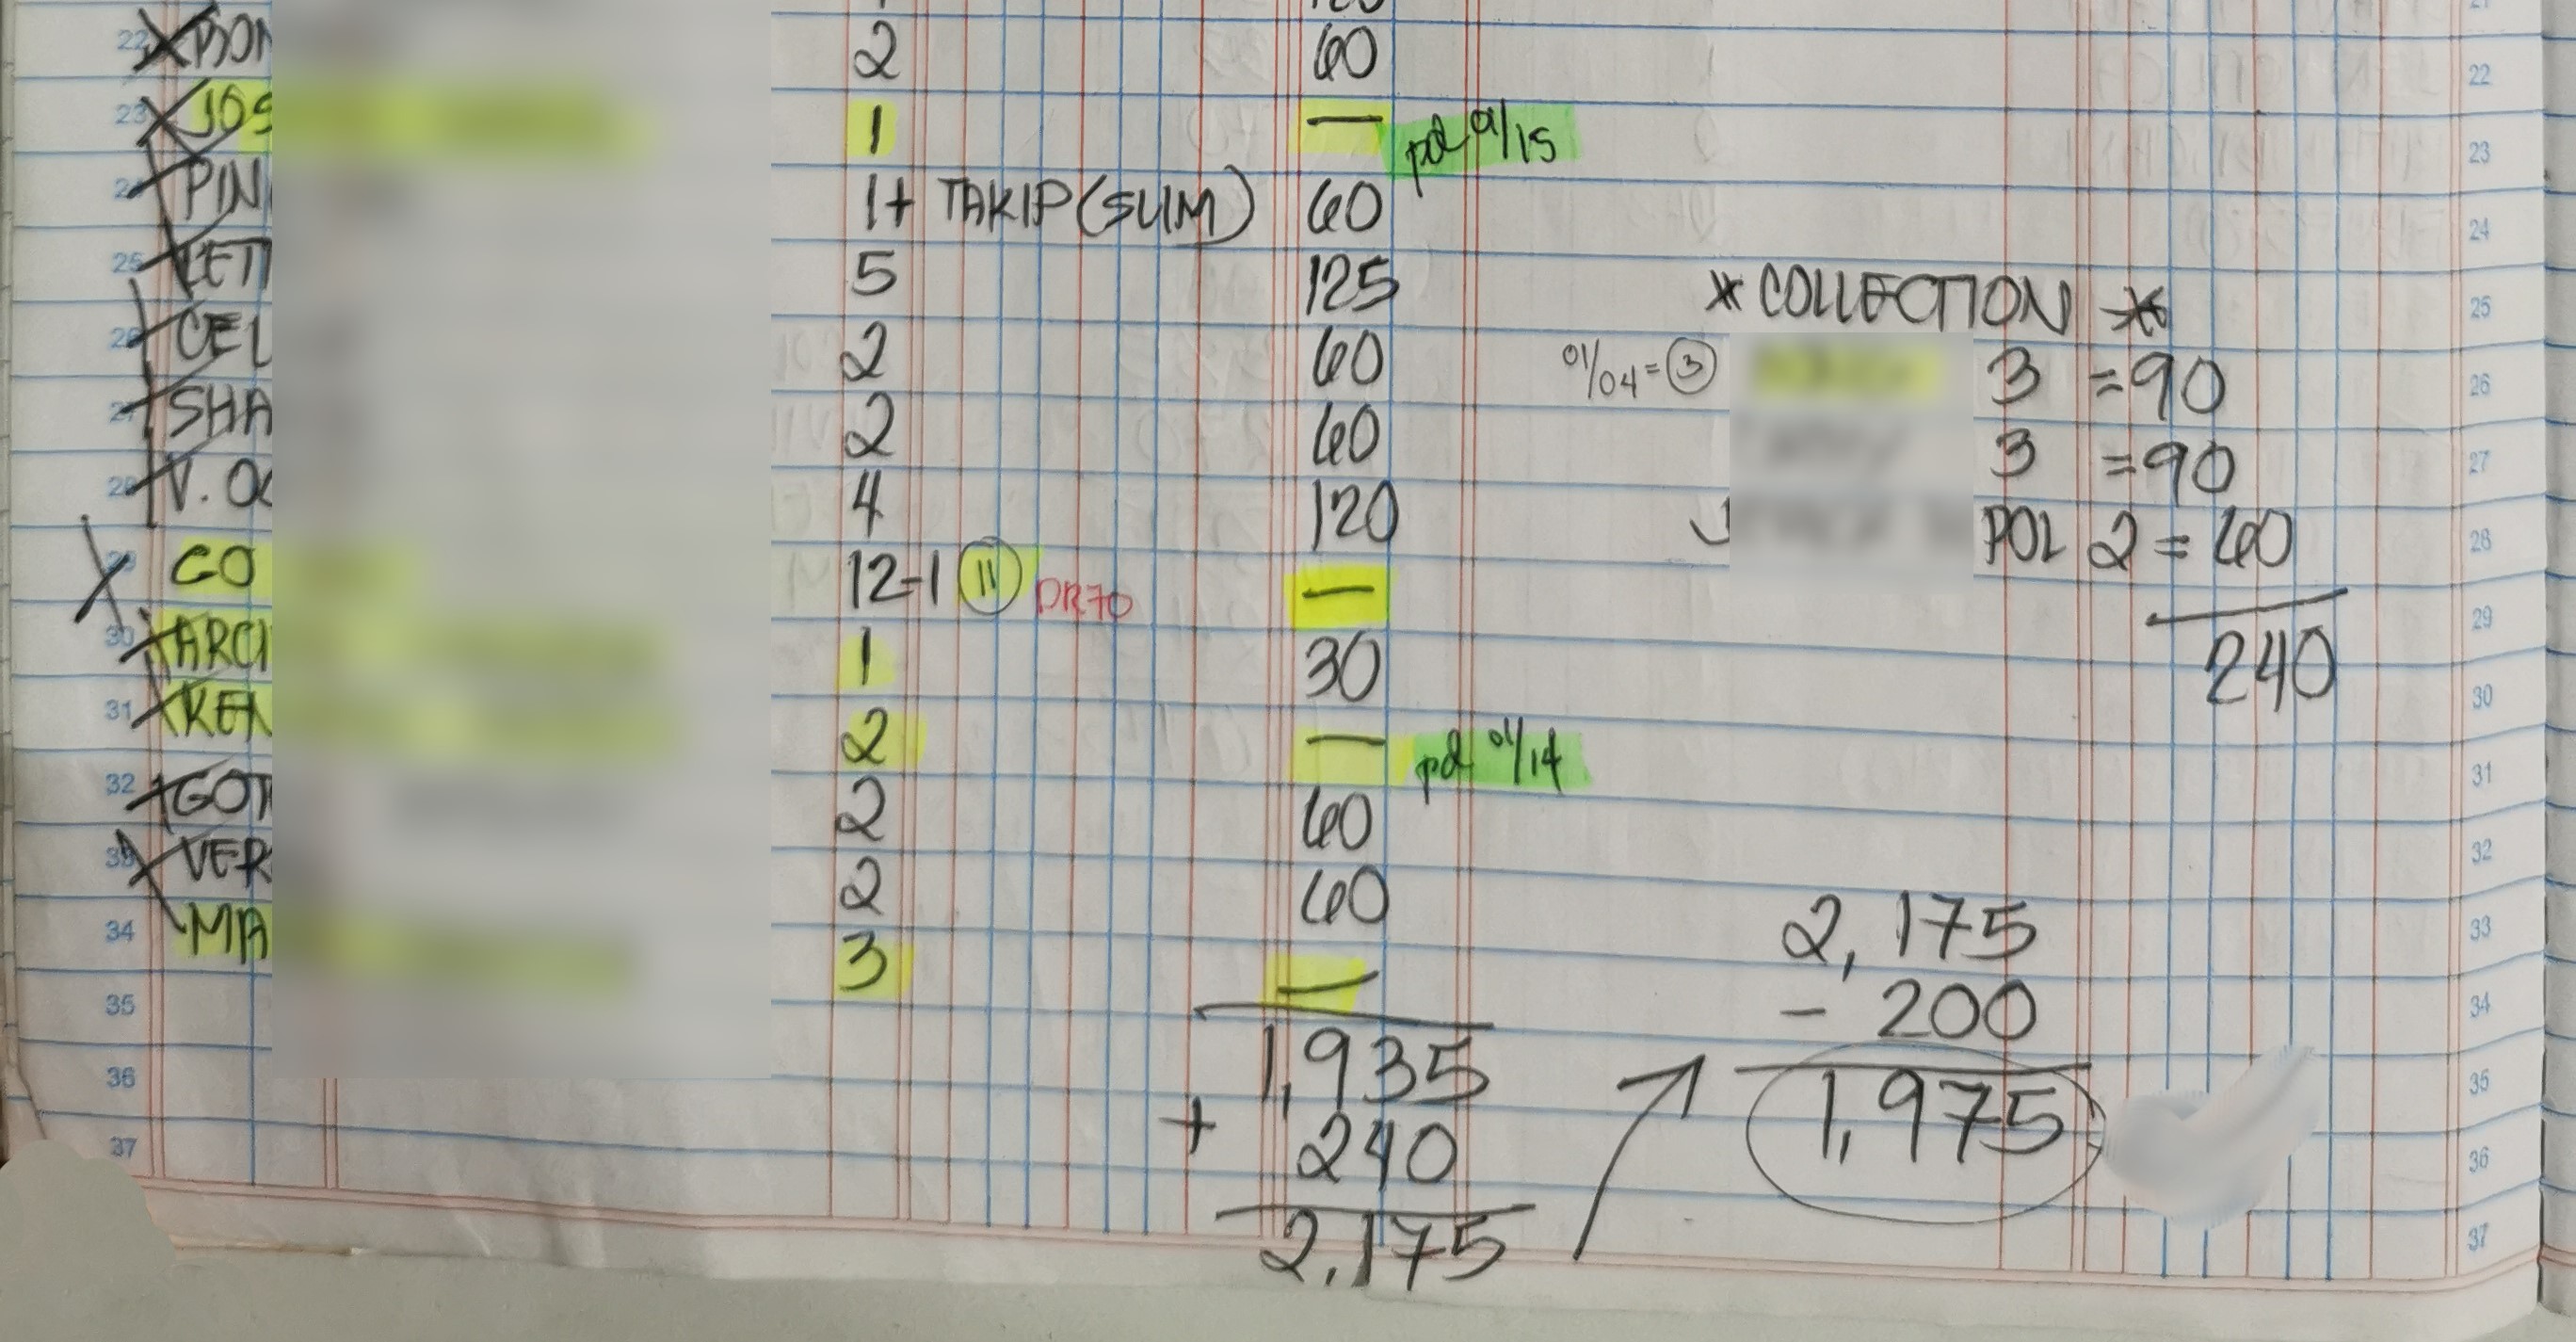 22 BON 2 60 22
23 JOS 1 — pd 01/15 23
24 PIN 1+ TAKIP (SLIM) 60 24
25 LETT 5 125 * COLLECTION * 25
26 CEL 2 60 01/04 = 3 3 = 90 26
27 SHA 2 60 3 = 90 27
28 V. OC 4 120 POL 2 = 60 28
29 CO 12-1 11 DR70 — 29
30 ARCI 1 30 240 30
31 KEN 2 — pd 01/14 31
32 GOT 2 60 32
33 VER 2 60 2,175 33
34 MA 3 — - 200 34
35 1,935 1,975 35
36 + 240 36
37 2,175 37